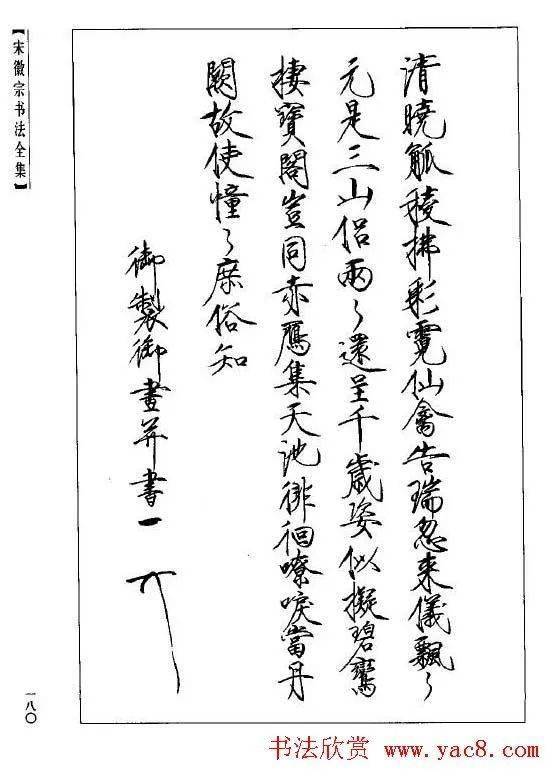 清曉觚稜拂彩霓仙禽告瑞忽來儀飄々
元是三山侶兩々還呈千歲姿似擬碧鸞
棲寶閣豈同赤鴈集天池徘徊嘹唳當丹
闕故使憧々庶俗知
御製御畫并書
【宋徽宗书法全集】
一八〇
书法欣赏 www.yac8.com